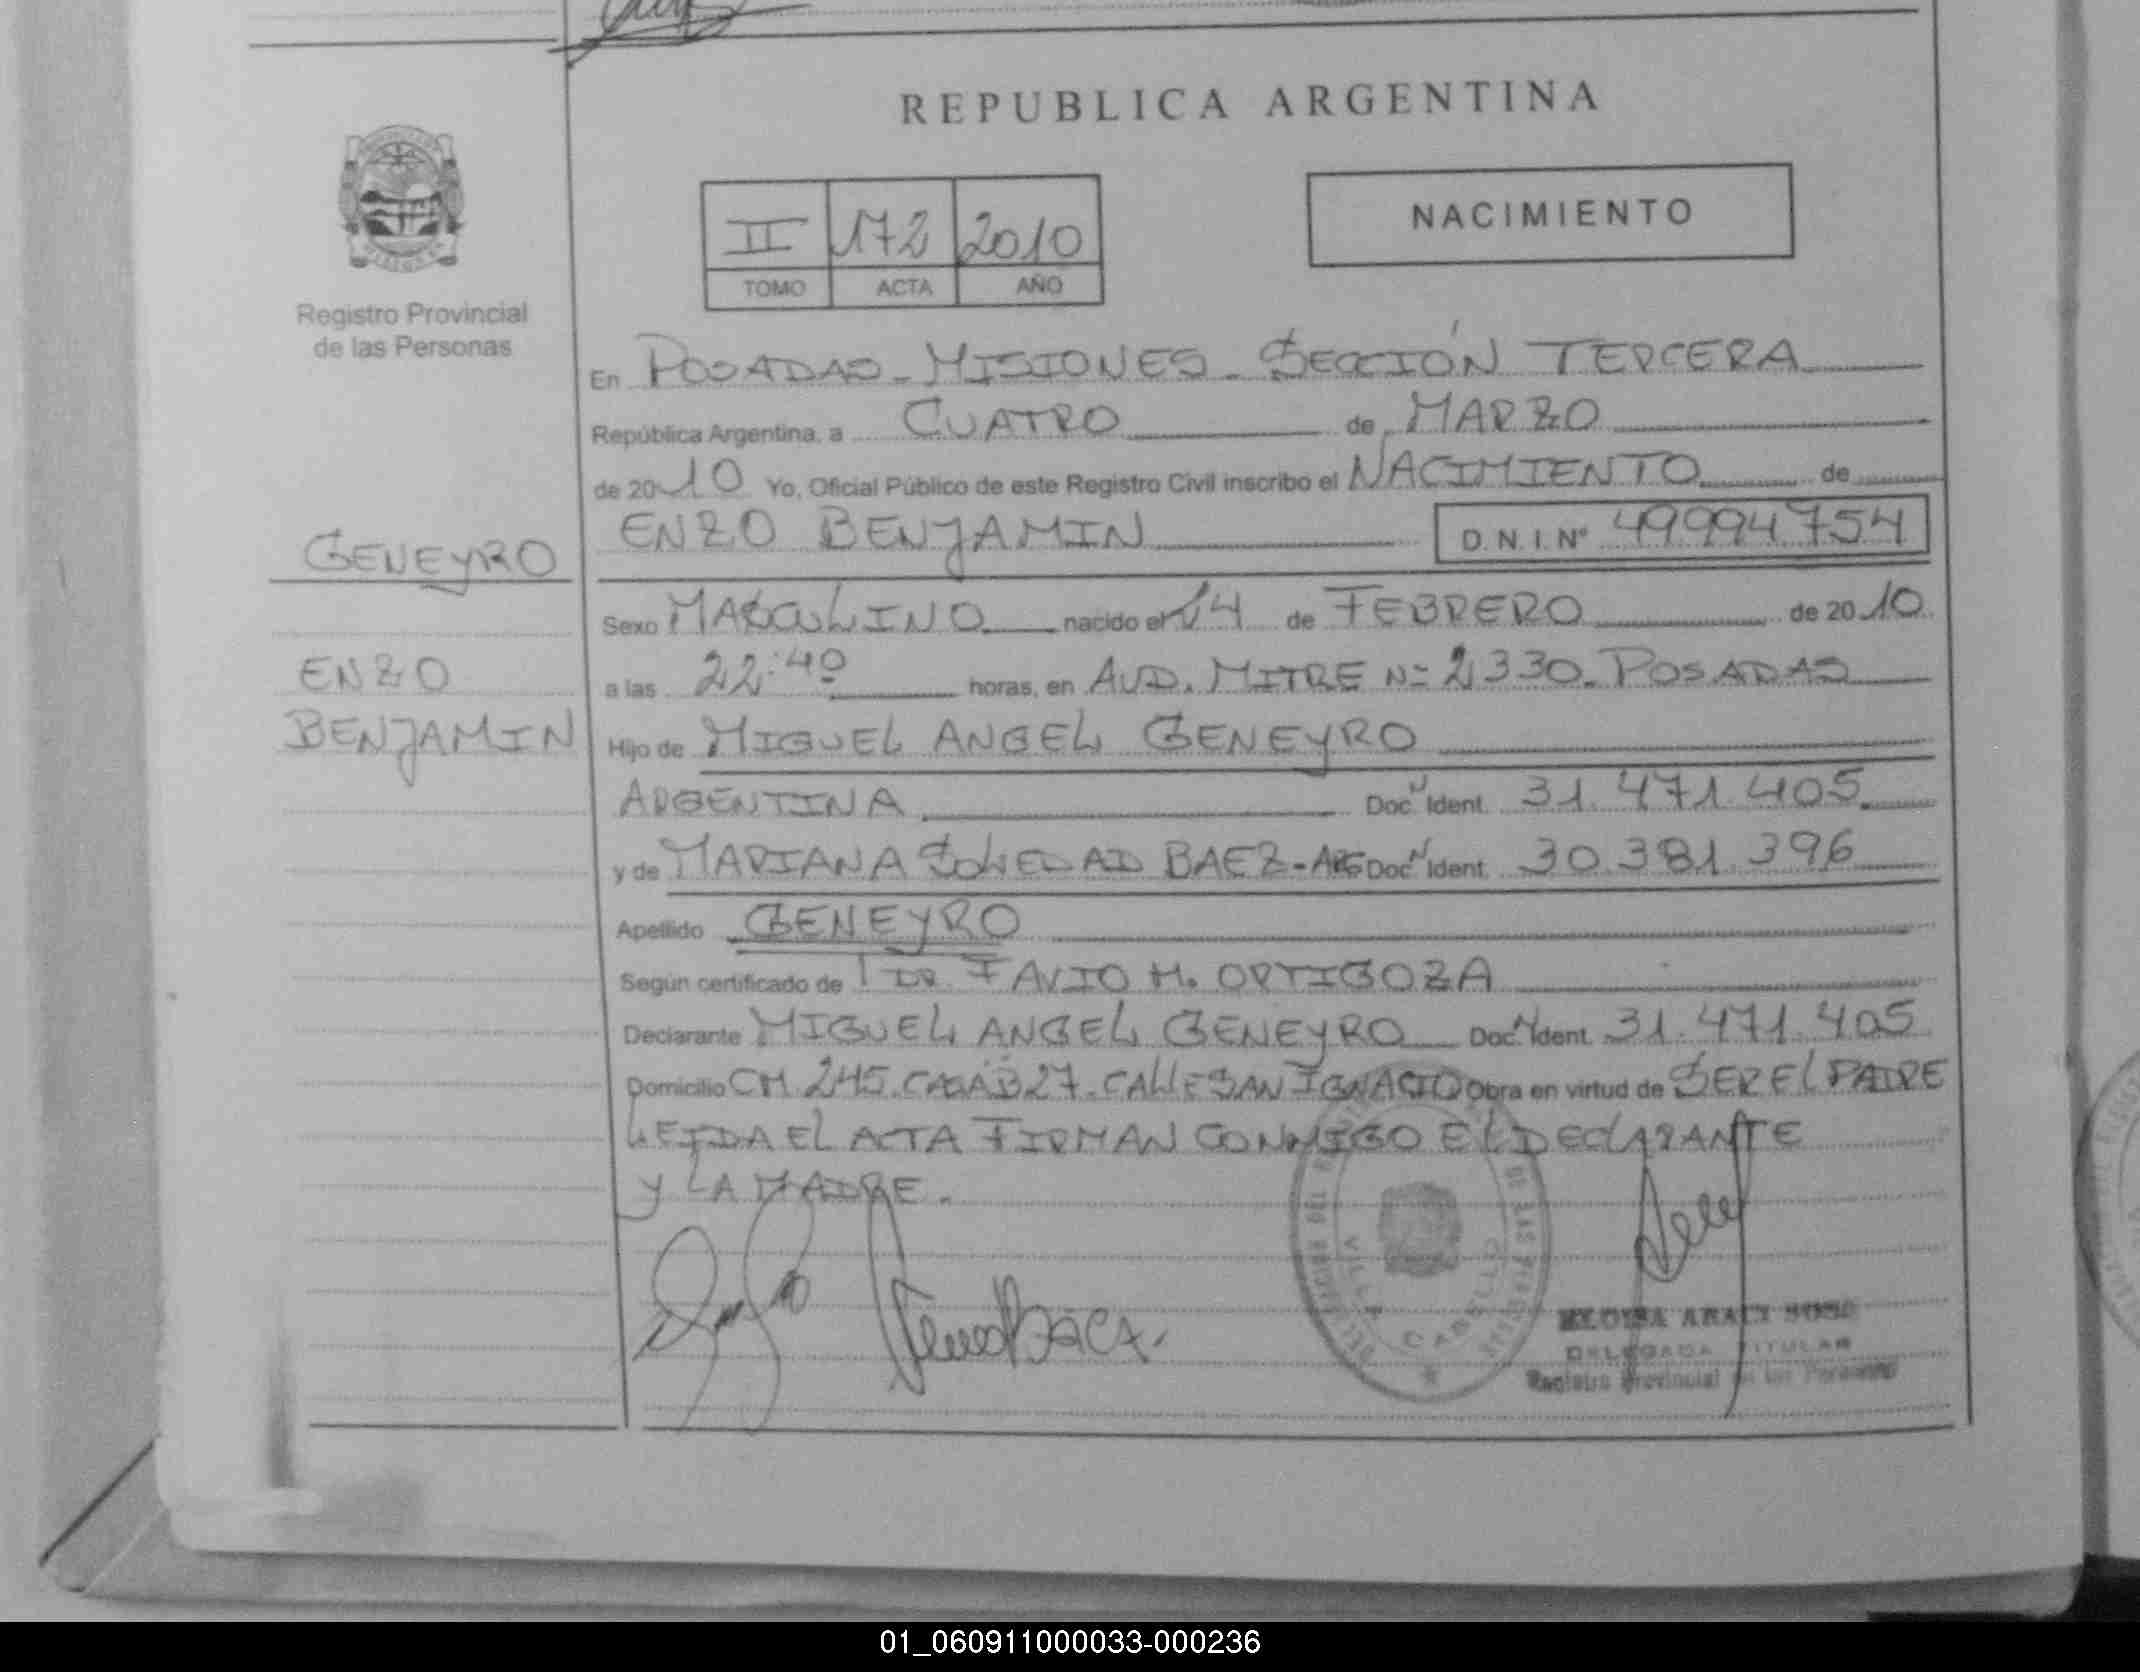 REPUBLICA ARGENTINA
II 172 2010
TOMO ACTA AÑO
NACIMIENTO
Registro Provincial
de las Personas
En POSADAS - MISIONES - SECCIÓN TERCERA
República Argentina, a CUATRO de MARZO
de 2010 Yo, Oficial Público de este Registro Civil inscribo el NACIMIENTO de
ENZO BENJAMIN D.N.I.Nº 49994754
GENEYRO
ENZO
BENJAMIN
Sexo MASCULINO nacido el 14 de FEBRERO de 2010
a las 22:40 horas, en AVD. MITRE Nº 2330. POSADAS
Hijo de MIGUEL ANGEL GENEYRO
ARGENTINA Doc. Ident. 31.471.405
y de MARIANA SOLEDAD BAEZ - ARG Doc. Ident. 30.381.396
Apellido GENEYRO
Según certificado de DR. FAVIO M. ORTIGOZA
Declarante MIGUEL ANGEL GENEYRO Doc. Ident. 31.471.405
Domicilio CH 245. CASA B27 - CALLE SAN IGNACIO Obra en virtud de SER EL PADRE
LEIDA EL ACTA FIRMAN CONMIGO EL DECLARANTE
Y LA MADRE.
VILLA CABELLO
DELEGADA TITULAR
Registro Provincial de las Personas
01_060911000033-000236